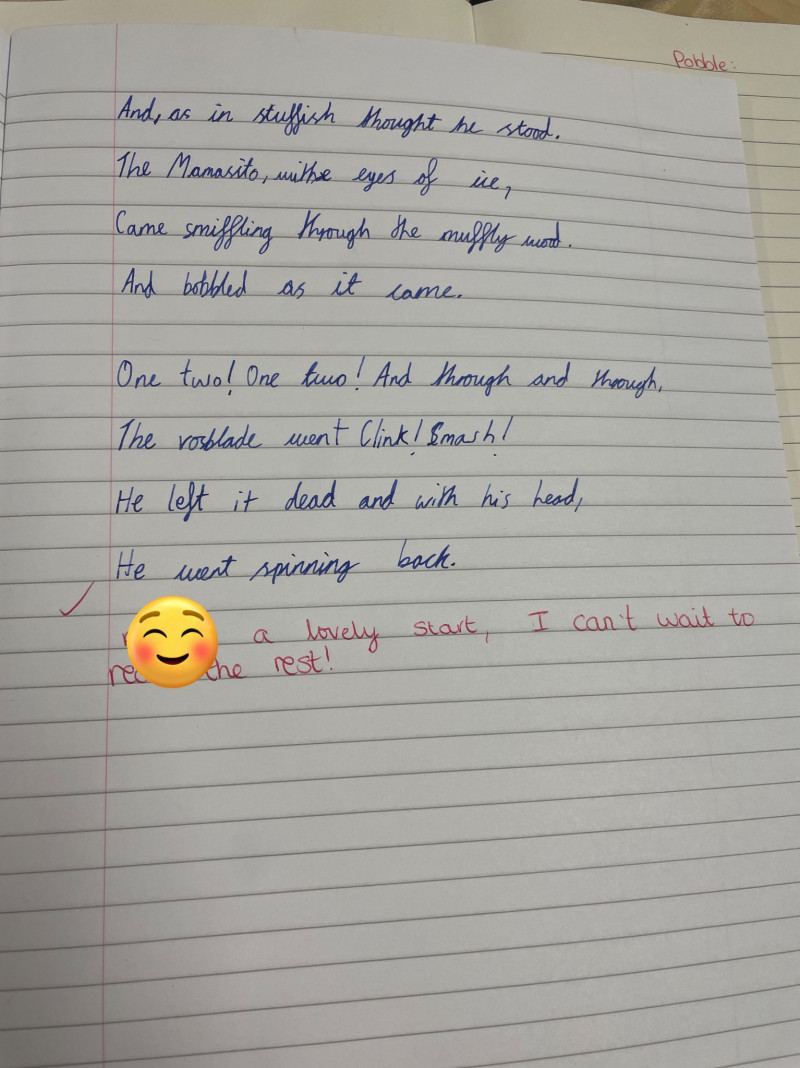 Pobble:
And, as in stuffish thought he stood.
The Mamasito, withe eyes of ice,
Came sniffling through the muffly wood.
And bobbled as it came.
One two! One two! And through and through,
The rosblade went Clink! Smash!
He left it dead and with his head,
He went spinning back.
a lovely start, I can't wait to
the rest!